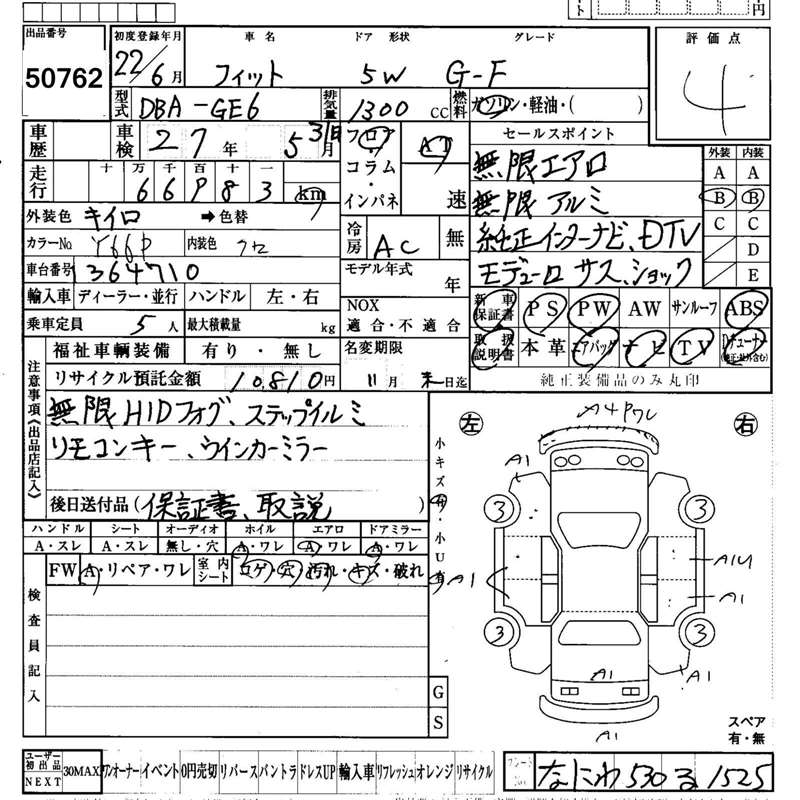 円
出品番号
50762
初度登録年月 車名 ドア 形状 グレード
22/6月 フィット 5W G-F
型式 DBA-GE6 排気量 1300 CC 燃料 ガソリン・軽油・( )
評価点
4
車歴 車検 27年 5月 31日
走行 十万千百十一
66983 km
外装色 キイロ ➡色替
カラーNo Y66P 内装色 クロ
車台番号 1364710
輸入車 ディーラー・並行 ハンドル 左・右
乗車定員 5人 最大積載量 kg
フロア・コラム・インパネ AT 速
冷房 AC 無
モデル年式 年
NOX 適合・不適合
セールスポイント
無限エアロ
無限アルミ
純正インターナビ、DTV
モデューロ サス、ショック
外装 内装
A A
B B
C C
D
E
新車保証書 PS PW AW サンルーフ ABS
取扱説明書 本革 エアバッグ ナビ TV
純正装備品のみ丸印
福祉車輌装備 有り・無し
リサイクル預託金額 10,810円
名変期限
11月 末日迄
注意事項《出品店記入》
無限HIDフォグ、ステップイルミ
リモコンキー、ウインカーミラー
後日送付品(保証書、取説)
ハンドル シート オーディオ ホイル エアロ ドアミラー
A・スレ A・スレ 無し・穴 A・ワレ A・ワレ A・ワレ
FW A・リペア・ワレ 室内シート コゲ・穴・汚れ・キズ・破れ
検査員記入
小キズ 小U
G
S
左 右
A4 Pワレ
A1
3
3
A1U
A1
A1
3
3
A1
A1
A1
スペア
有・無
ユーザー初出品 NEXT 30MAX ワンオーナー イベント 0円売切 リバース バントラ ドレスUP 輸入車 リフレッシュ オレンジ リサイクル
なにわ 530 る 1525